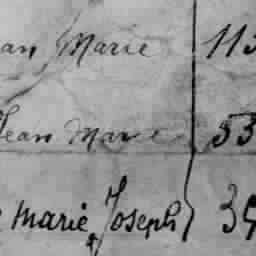 Jean Marie 113
Jean Marie 53
Marie Joseph 39